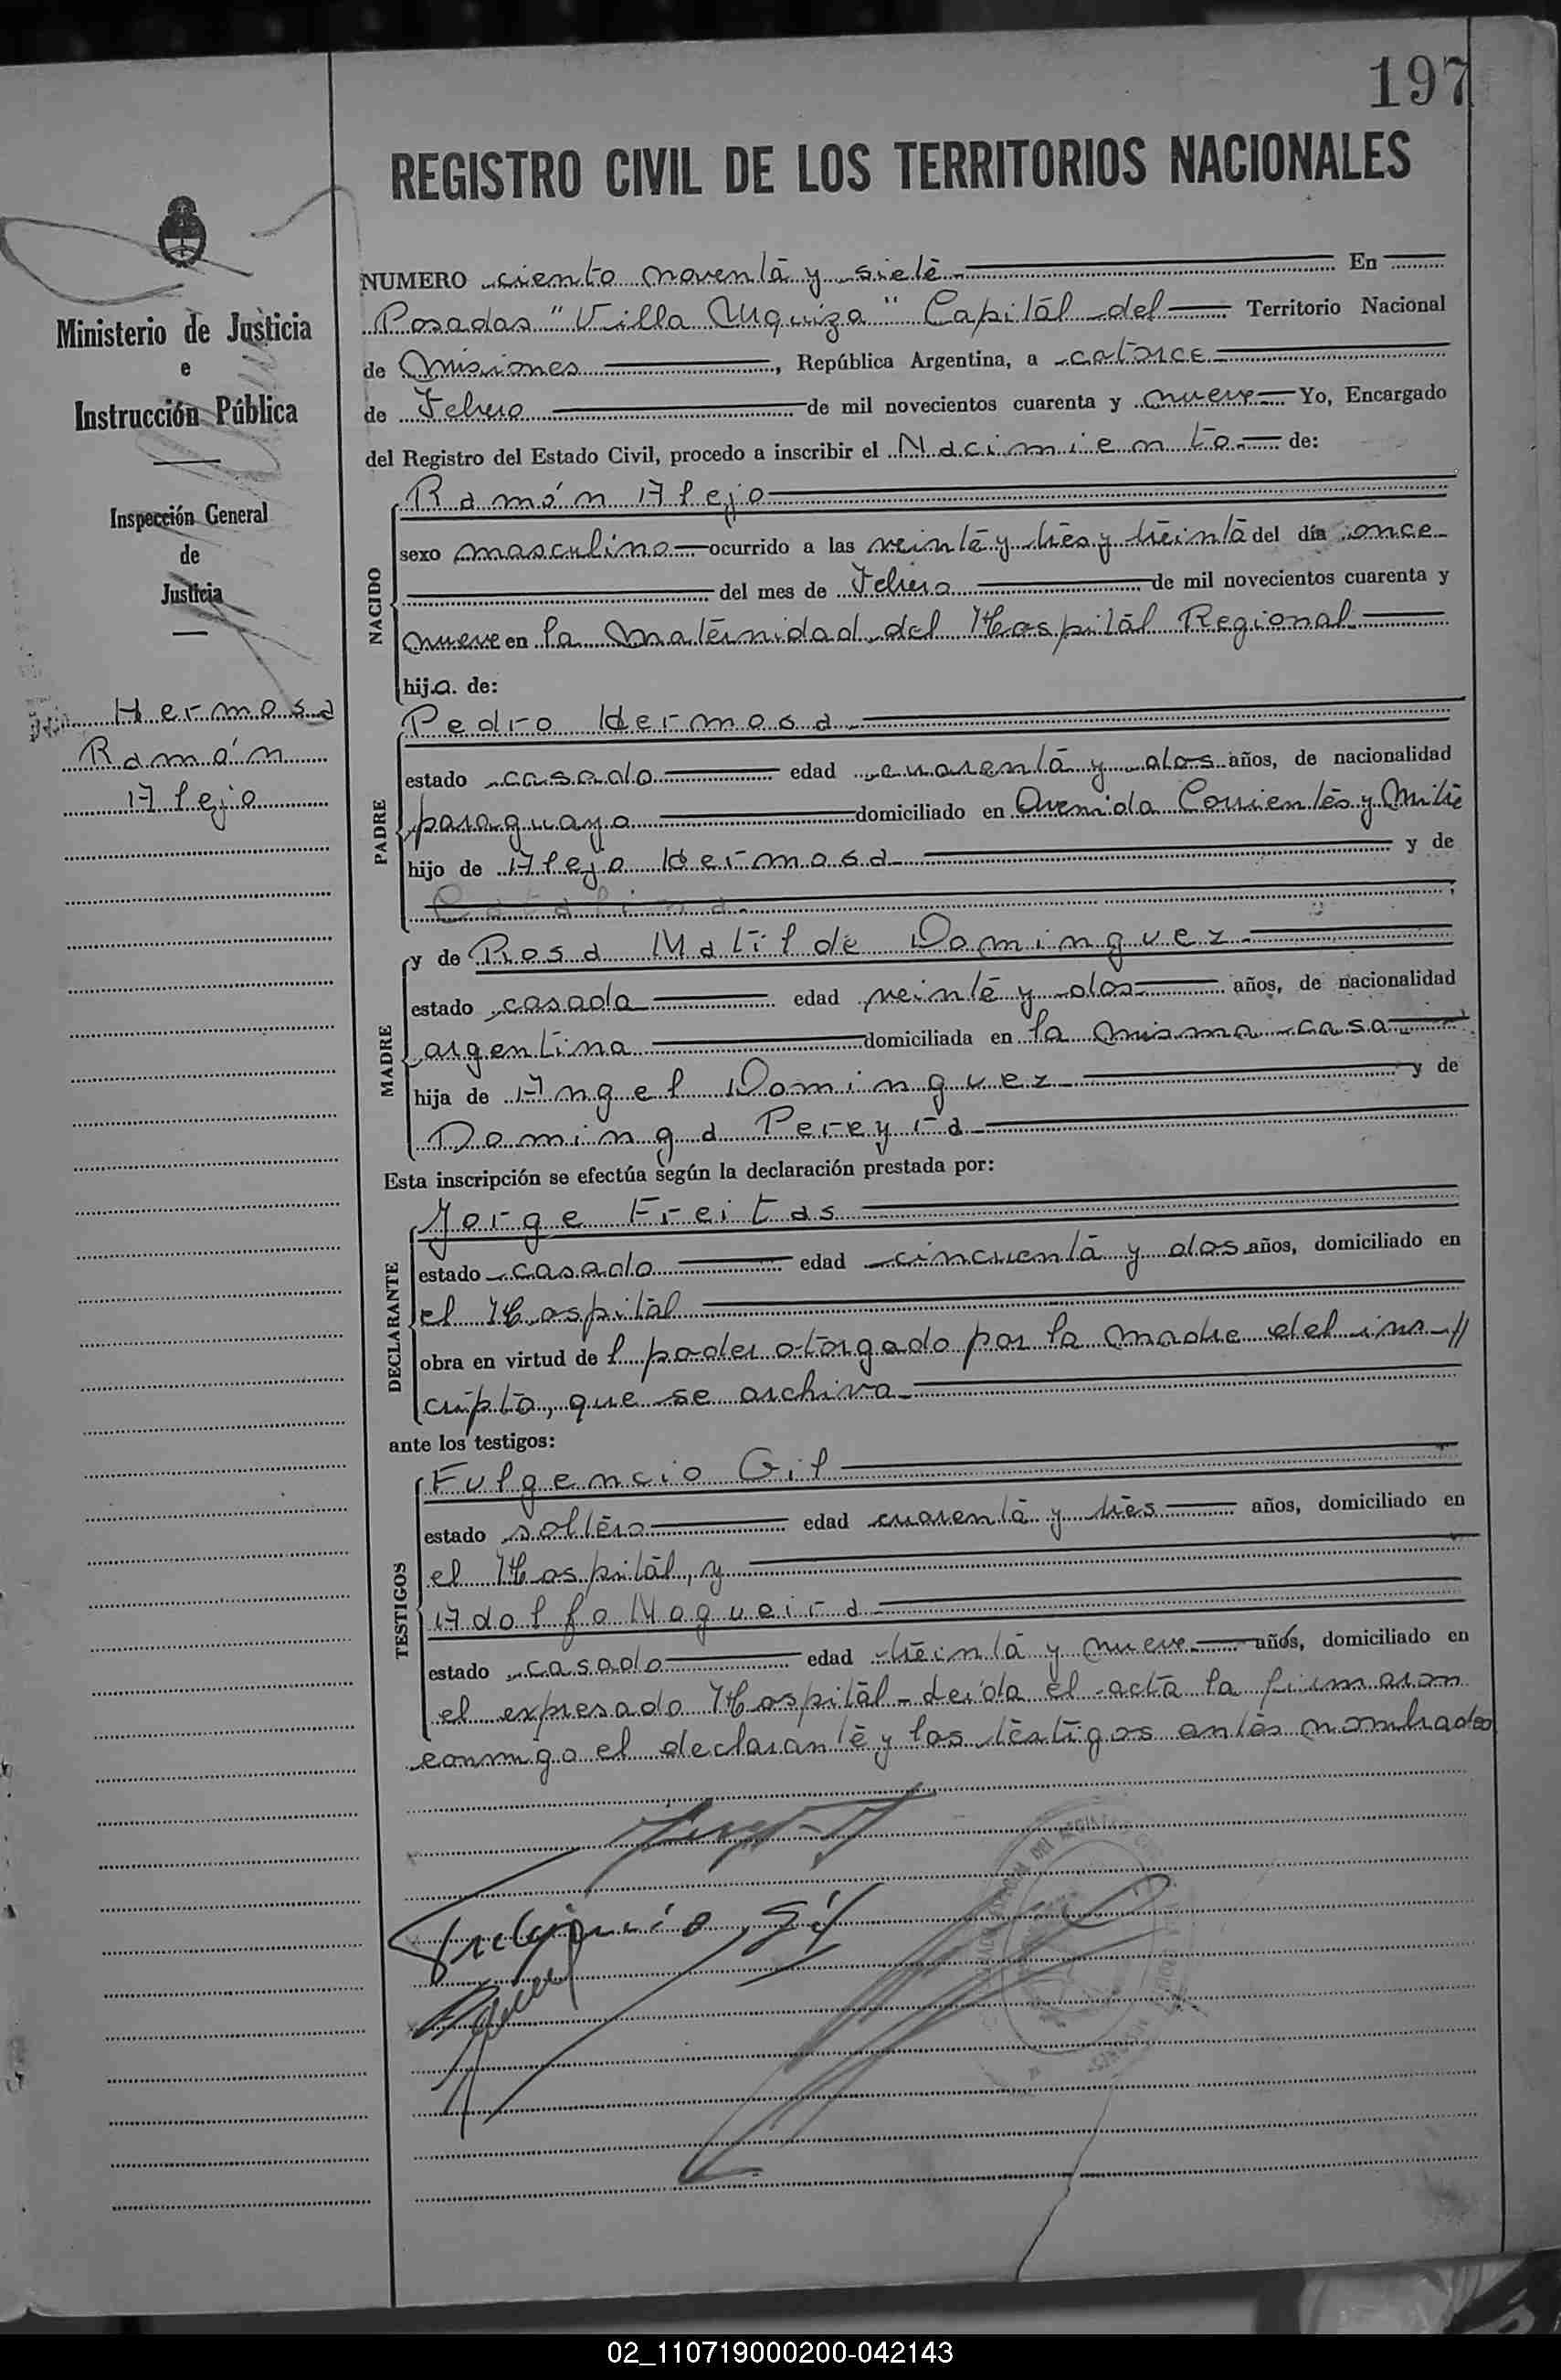 197
REGISTRO CIVIL DE LOS TERRITORIOS NACIONALES
Ministerio de Justicia
e
Instrucción Pública
Inspección General
de
Justicia
Hermosa
Ramón
Alejo
NUMERO ciento noventa y siete En
Posadas "Villa Urquiza" Capital del Territorio Nacional
de Misiones, República Argentina, a catorce
de Febrero de mil novecientos cuarenta y nueve Yo, Encargado
del Registro del Estado Civil, procedo a inscribir el Nacimiento de:
NACIDO
Ramón Alejo
sexo masculino ocurrido a las veinte y tres y treinta del día once
del mes de Febrero de mil novecientos cuarenta y
nueve en la Maternidad del Hospital Regional
hijo. de:
PADRE
Pedro Hermosa
estado casado edad cuarenta y dos años, de nacionalidad
paraguayo domiciliado en Avenida Corrientes y Mitre
hijo de Alejo Hermosa y de
Catalina
MADRE
y de Rosa Matilde Dominguez
estado casada edad veinte y dos años, de nacionalidad
argentina domiciliada en la misma casa
hija de Angel Dominguez y de
Dominga Pereyra
Esta inscripción se efectúa según la declaración prestada por:
DECLARANTE
Jorge Freitas
estado casado edad cincuenta y dos años, domiciliado en
el Hospital
obra en virtud del poder otorgado por la madre del ins-//
cripto, que se archiva
ante los testigos:
TESTIGOS
Fulgencio Gil
estado soltero edad cuarenta y tres años, domiciliado en
el Hospital, y
Adolfo Nogueira
estado casado edad treinta y nueve años, domiciliado en
el expresado Hospital - Leída el acta la firmaron
conmigo el declarante y los testigos antes nombrados
Fulgencio Gil
02_110719000200-042143